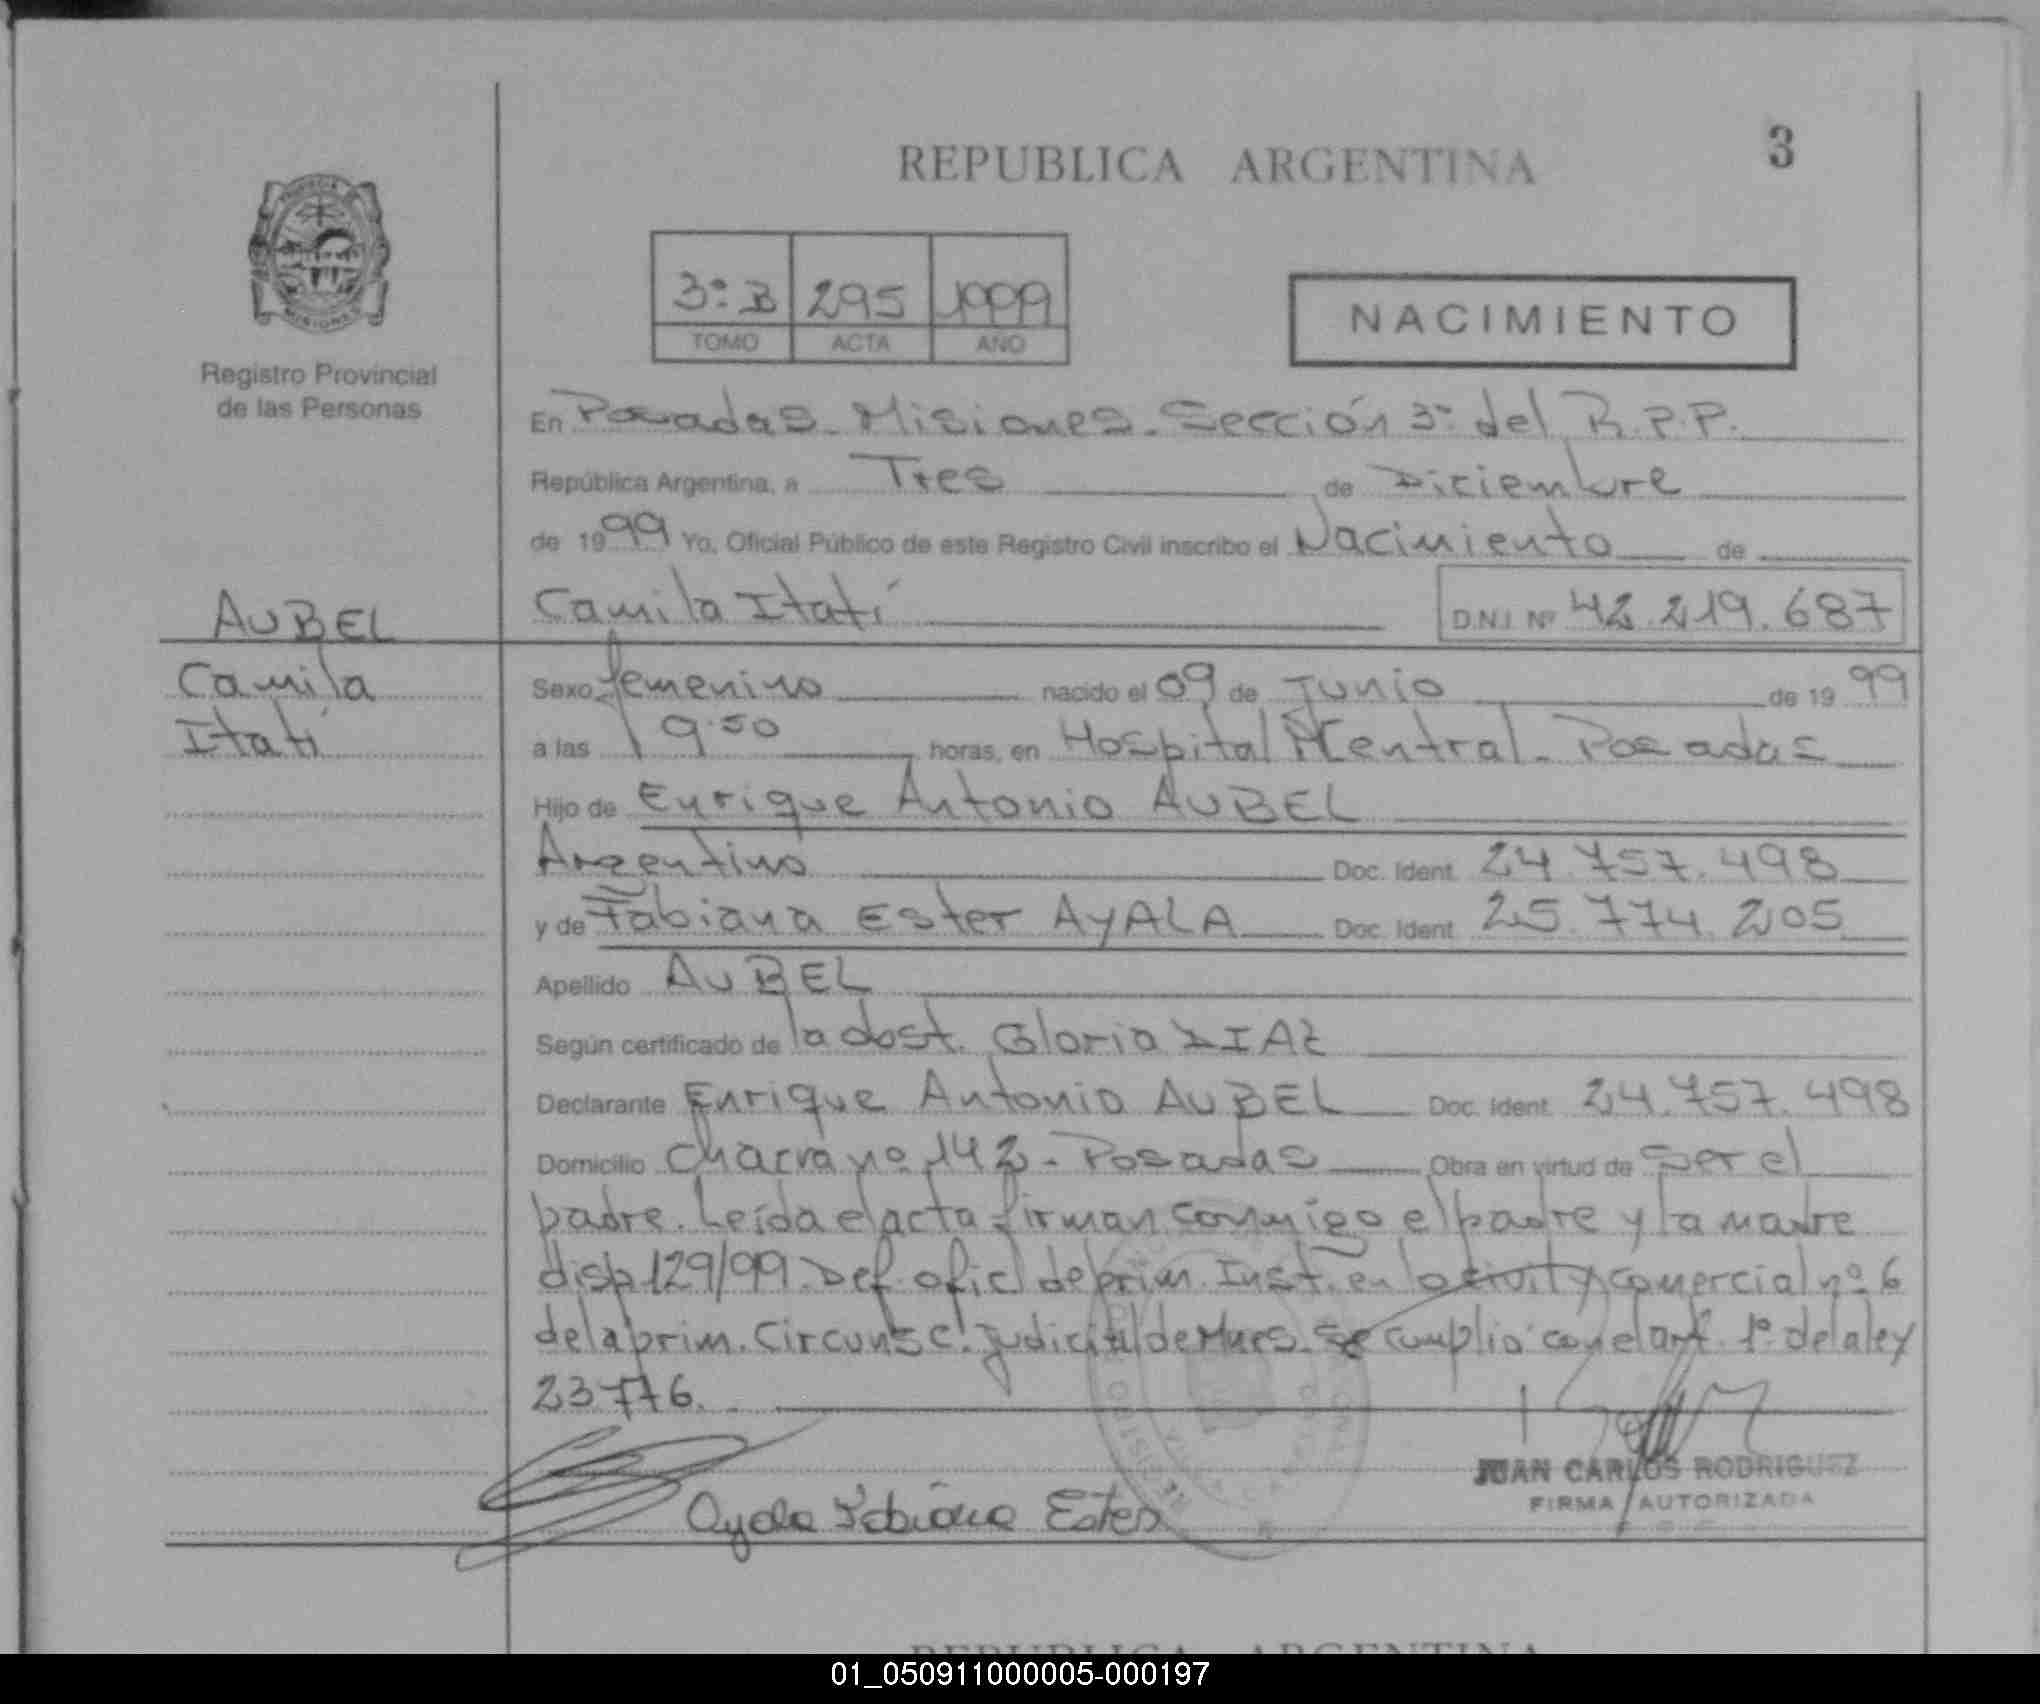 REPUBLICA ARGENTINA
3
MISIONES
Registro Provincial
de las Personas
3º B 295 1999
TOMO ACTA AÑO
NACIMIENTO
En Posadas - Misiones - Sección 3º del R.P.P.
República Argentina, a Tres de Diciembre
de 1999 Yo, Oficial Público de este Registro Civil inscribo el Nacimiento de
AUBEL
Camila Itatí D.N.I. Nº 42.219.687
Camila
Itatí
Sexo femenino nacido el 09 de Junio de 1999
a las 19.50 horas, en Hospital Central - Posadas
Hijo de Enrique Antonio AUBEL
Argentino Doc. Ident. 24.757.498
y de Fabiana Ester AYALA Doc. Ident. 25.774.205
Apellido AUBEL
Según certificado de la obst. Gloria DIAZ
Declarante Enrique Antonio AUBEL Doc. Ident. 24.757.498
Domicilio Chacra nº 142 - Posadas Obra en virtud de Ser el
padre. Leída el acta firman conmigo el padre y la madre
disp. 129/99. Def. ofic. de prim. Inst. en lo civil y comercial nº 6
de la prim. Circunsc. Judicial de Mnes. Se cumplió con el art. 1º de la ley
23.776.
JUAN CARLOS RODRIGUEZ
FIRMA AUTORIZADA
Ayala Fabiana Ester
REPUBLICA ARGENTINA
01_050911000005-000197